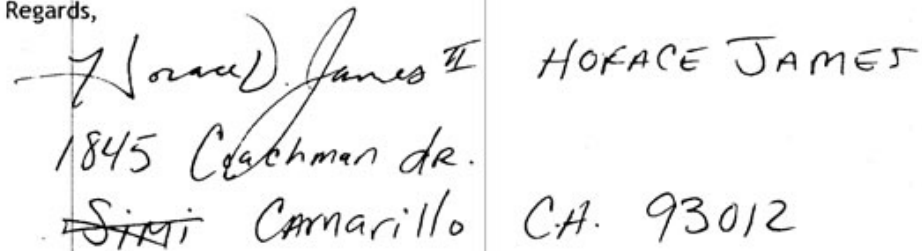 Regards,
Horace D. James II HORACE JAMES
1845 Coachman dR.
Simi Camarillo CA. 93012